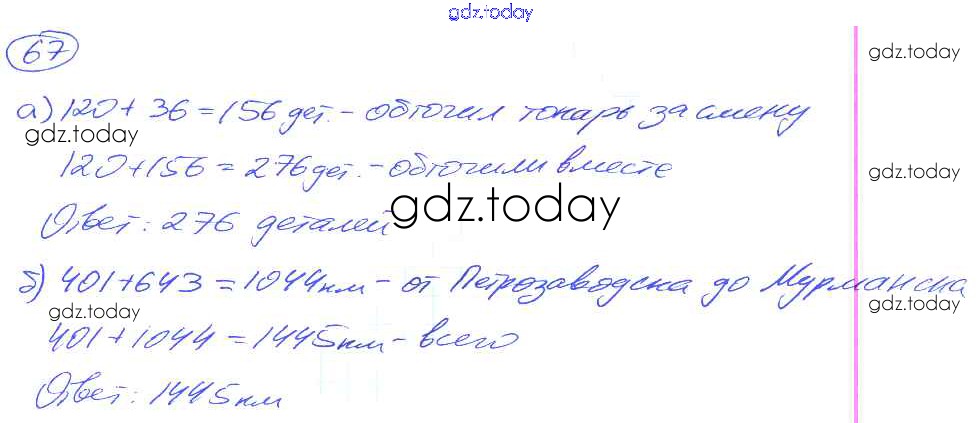 gdz.today
67
gdz.today
а) 120 + 36 = 156 дет. - обточил токарь за смену
gdz.today
120 + 156 = 276 дет. - обточили вместе
gdz.today
gdz.today
Ответ: 276 деталей
б) 401 + 643 = 1044 км - от Петрозаводска до Мурманска
gdz.today
gdz.today
401 + 1044 = 1445 км - всего
Ответ: 1445 км